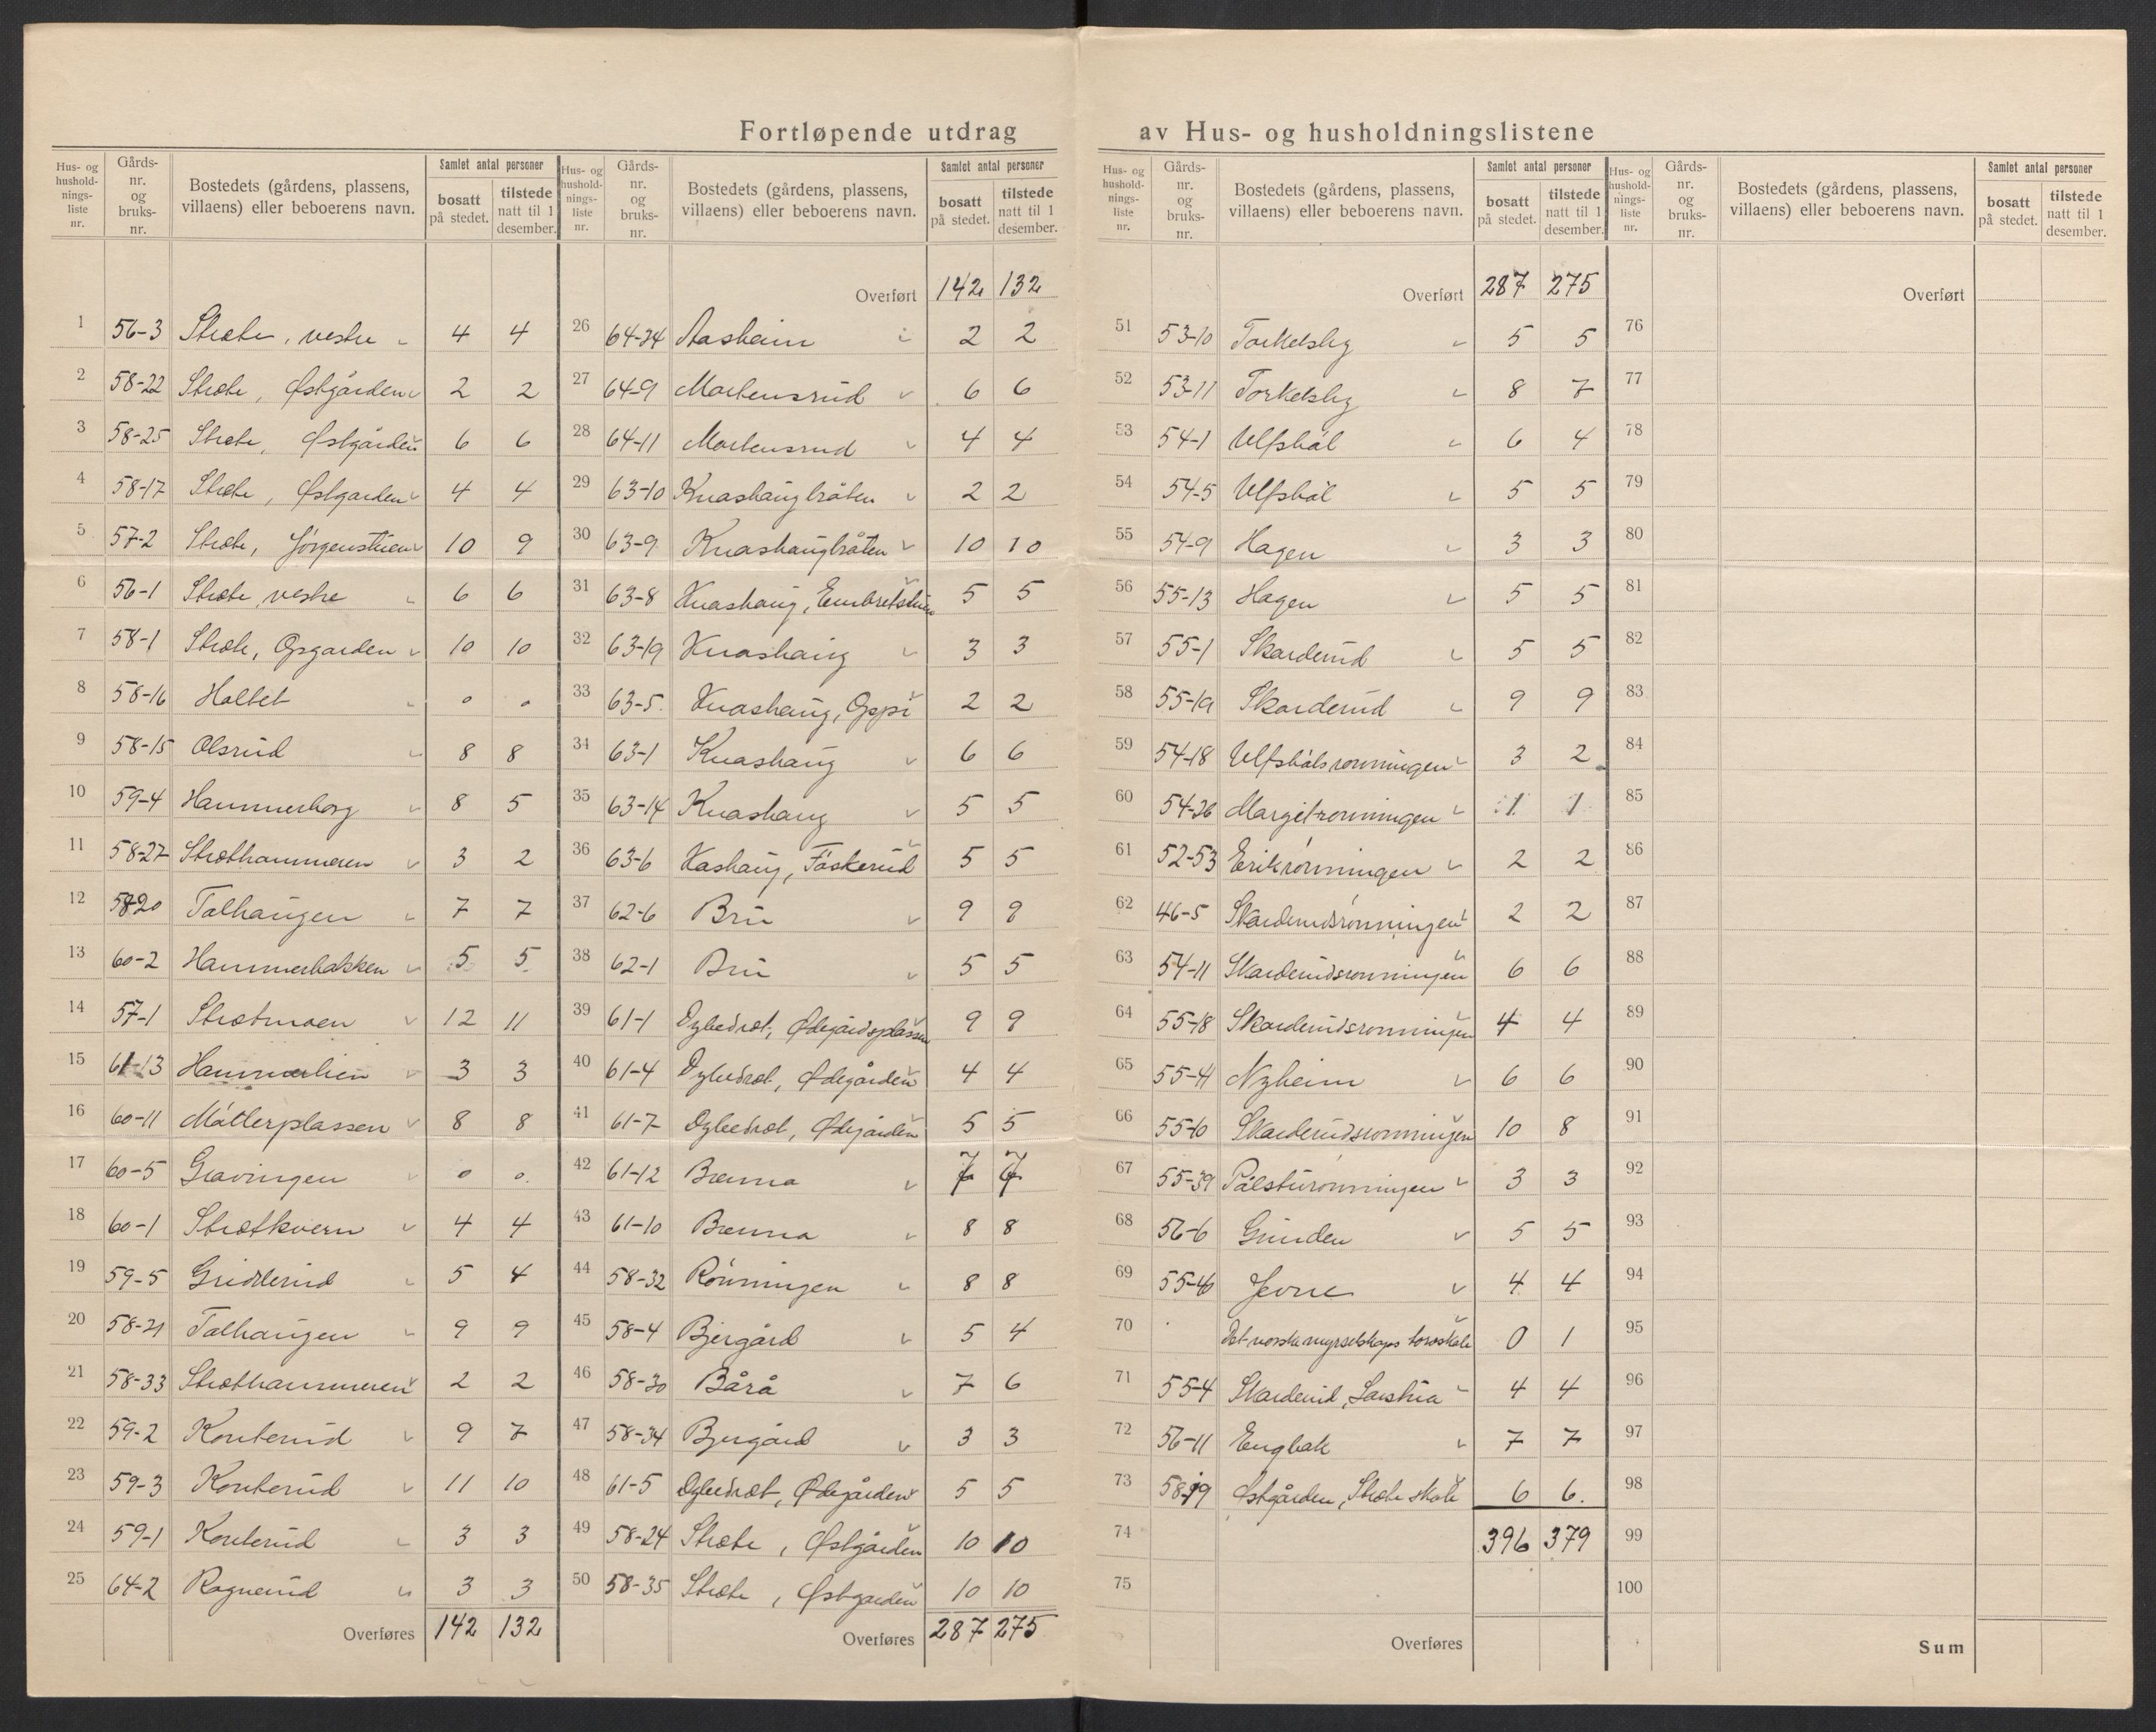 Fortløpende utdrag av Hus- og husholdningslistene
Hus- og hushold-nings-liste nr. Gårds-nr. og bruks-nr. Bostedets (gårdens, plassens, villaens) eller beboerens navn. Samlet antal personer bosatt på stedet. tilstede natt til 1 desember.
1 56-3 Stræte, vestre 4 4
2 58-22 Stræte, Østgården 2 2
3 58-25 Stræte, Østgården 6 6
4 58-17 Stræte, Østgarden 4 4
5 57-2 Stræte, Jørgenstuen 10 9
6 56-1 Stræte, vestre 6 6
7 58-1 Stræte, Opgarden 10 10
8 58-16 Holtet 0 0
9 58-15 Olsrud 8 8
10 59-4 Hammerborg 8 5
11 58-27 Stræthammeren 3 2
12 58-20 Talhaugen 7 7
13 60-2 Hammerbakken 5 5
14 57-1 Strætmoen 12 11
15 61-13 Hammerlien 3 3
16 60-11 Måtlerplassen 8 8
17 60-5 Gravingen 0 0
18 60-1 Strætkvern 4 4
19 59-5 Gridlerud 5 4
20 58-21 Talhaugen 9 9
21 58-33 Stræthammeren 2 2
22 59-2 Konterud 9 7
23 59-3 Konterud 11 10
24 59-1 Konterud 3 3
25 64-2 Rognerud 3 3
Overføres 142 132
Hus- og hushold-nings-liste nr. Gårds-nr. og bruks-nr. Bostedets (gårdens, plassens, villaens) eller beboerens navn. Samlet antal personer bosatt på stedet. tilstede natt til 1 desember.
Overført 142 132
26 64-34 Aasheim 2 2
27 64-9 Mortensrud 6 6
28 64-11 Mortensrud 4 4
29 63-10 Knashaugbråten 2 2
30 63-9 Knashaugbråten 10 10
31 63-8 Knashaug, Embretstuen 5 5
32 63-19 Knashaug 3 3
33 63-5 Knashaug, Oppi 2 2
34 63-1 Knashaug 6 6
35 63-14 Knashaug 5 5
36 63-6 Kashaug, Fåskerud 5 5
37 62-6 Bru 9 9
38 62-1 Bru 5 5
39 61-1 Dybedræt, Ødegårdsplassen 9 9
40 61-4 Dybedræt, Ødegården 4 4
41 61-7 Dybedræt, Ødegården 5 5
42 61-12 Brenna 7 7
43 61-10 Brenna 8 8
44 58-32 Rønningen 8 8
45 58-4 Bjergård 5 4
46 58-30 Bårå 7 6
47 58-34 Bjergård 3 3
48 61-5 Dybedræt, Ødegården 5 5
49 58-24 Stræte, Østgården 10 10
50 58-35 Stræte, Østgarden 10 10
Overføres 287 275
Hus- og hushold-nings-liste nr. Gårds-nr. og bruks-nr. Bostedets (gårdens, plassens, villaens) eller beboerens navn. Samlet antal personer bosatt på stedet. tilstede natt til 1 desember.
Overført 287 275
51 53-10 Torkelsby 5 5
52 53-11 Torkelsby 8 7
53 54-1 Ulfsbøl 6 4
54 54-5 Ulfsbøl 5 5
55 54-9 Hagen 3 3
56 55-13 Hagen 5 5
57 55-1 Skarderud 5 5
58 55-19 Skarderud 9 9
59 54-18 Ulfsbølsrønningen 3 2
60 54-26 Margitrønningen 1 1
61 52-53 Erikrønningen 2 2
62 46-5 Skarderudsrønningen 2 2
63 54-11 Skarderudsrønningen 6 6
64 55-18 Skarderudsrønningen 4 4
65 55-41 Nyheim 6 6
66 55-10 Skarderudsrønningen 10 8
67 55-39 Pålsturønningen 3 3
68 56-6 Grinden 5 5
69 55-40 Jevne 4 4
70 Det norske myrselskaps torvskole 0 1
71 55-4 Skarderud, Larstua 4 4
72 56-11 Engbak 7 7
73 58-19 Østgården, Stræte skole 6 6
74 396 379
75
Overføres
Hus- og hushold-nings-liste nr. Gårds-nr. og bruks-nr. Bostedets (gårdens, plassens, villaens) eller beboerens navn. Samlet antal personer bosatt på stedet. tilstede natt til 1 desember.
Overført
76
77
78
79
80
81
82
83
84
85
86
87
88
89
90
91
92
93
94
95
96
97
98
99
100
Sum